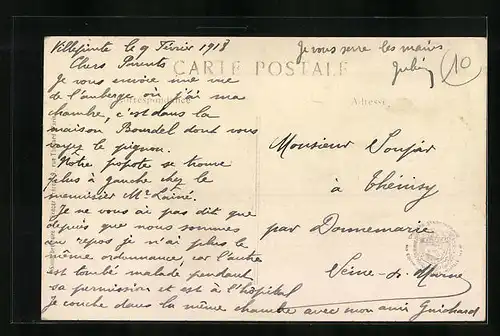 Villepinte le 9 Février 1918
Chers Parents
Je vous envoie une vue
de l'auberge où j'ai ma
chambre, c'est dans la
maison Bourdel dont vous
voyez le pignon.
Notre popote se trouve
plus à gauche chez le
menuisier Mr Lainé.
Je ne vous ai pas dit que
depuis que nous sommes
au repos je n'ai plus le
même ordonnance, car l'autre
est tombé malade pendant
sa permission et est à l'hôpital
Je couche dans la même chambre avec mon ami Guichard
Je vous serre les mains
10
CARTE POSTALE
Correspondance
Adresse
Monsieur
à Thénisy
par Donnemarie
Seine-et-Marne